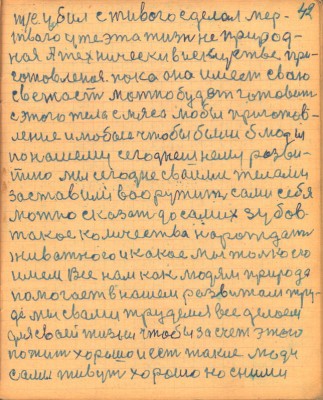 42
т/е убил с живого сделал мер-
твого уже эта жизн не природ-
ная А технически в искусстве при-
готовленоя. пока она имеет сваю
свежаст можно будет готовит
с этого тела с мяса любы приготов-
ление и любое чтобы были блюда
по нашему сегоднешнему разви-
тию мы сегодне сваими телами
заставили вооружит сами себя
можно сказат до самих зубов
такое количества нарождает
животного и какое мы только
имеем Все нам как людям природа
помогает в нашем развитам тру-
де мы сваими трудемся все делаем
для сваей жизни чтобы за счет этого
пожит хорошо и ест такие люди
сами живут хорошо но с ними